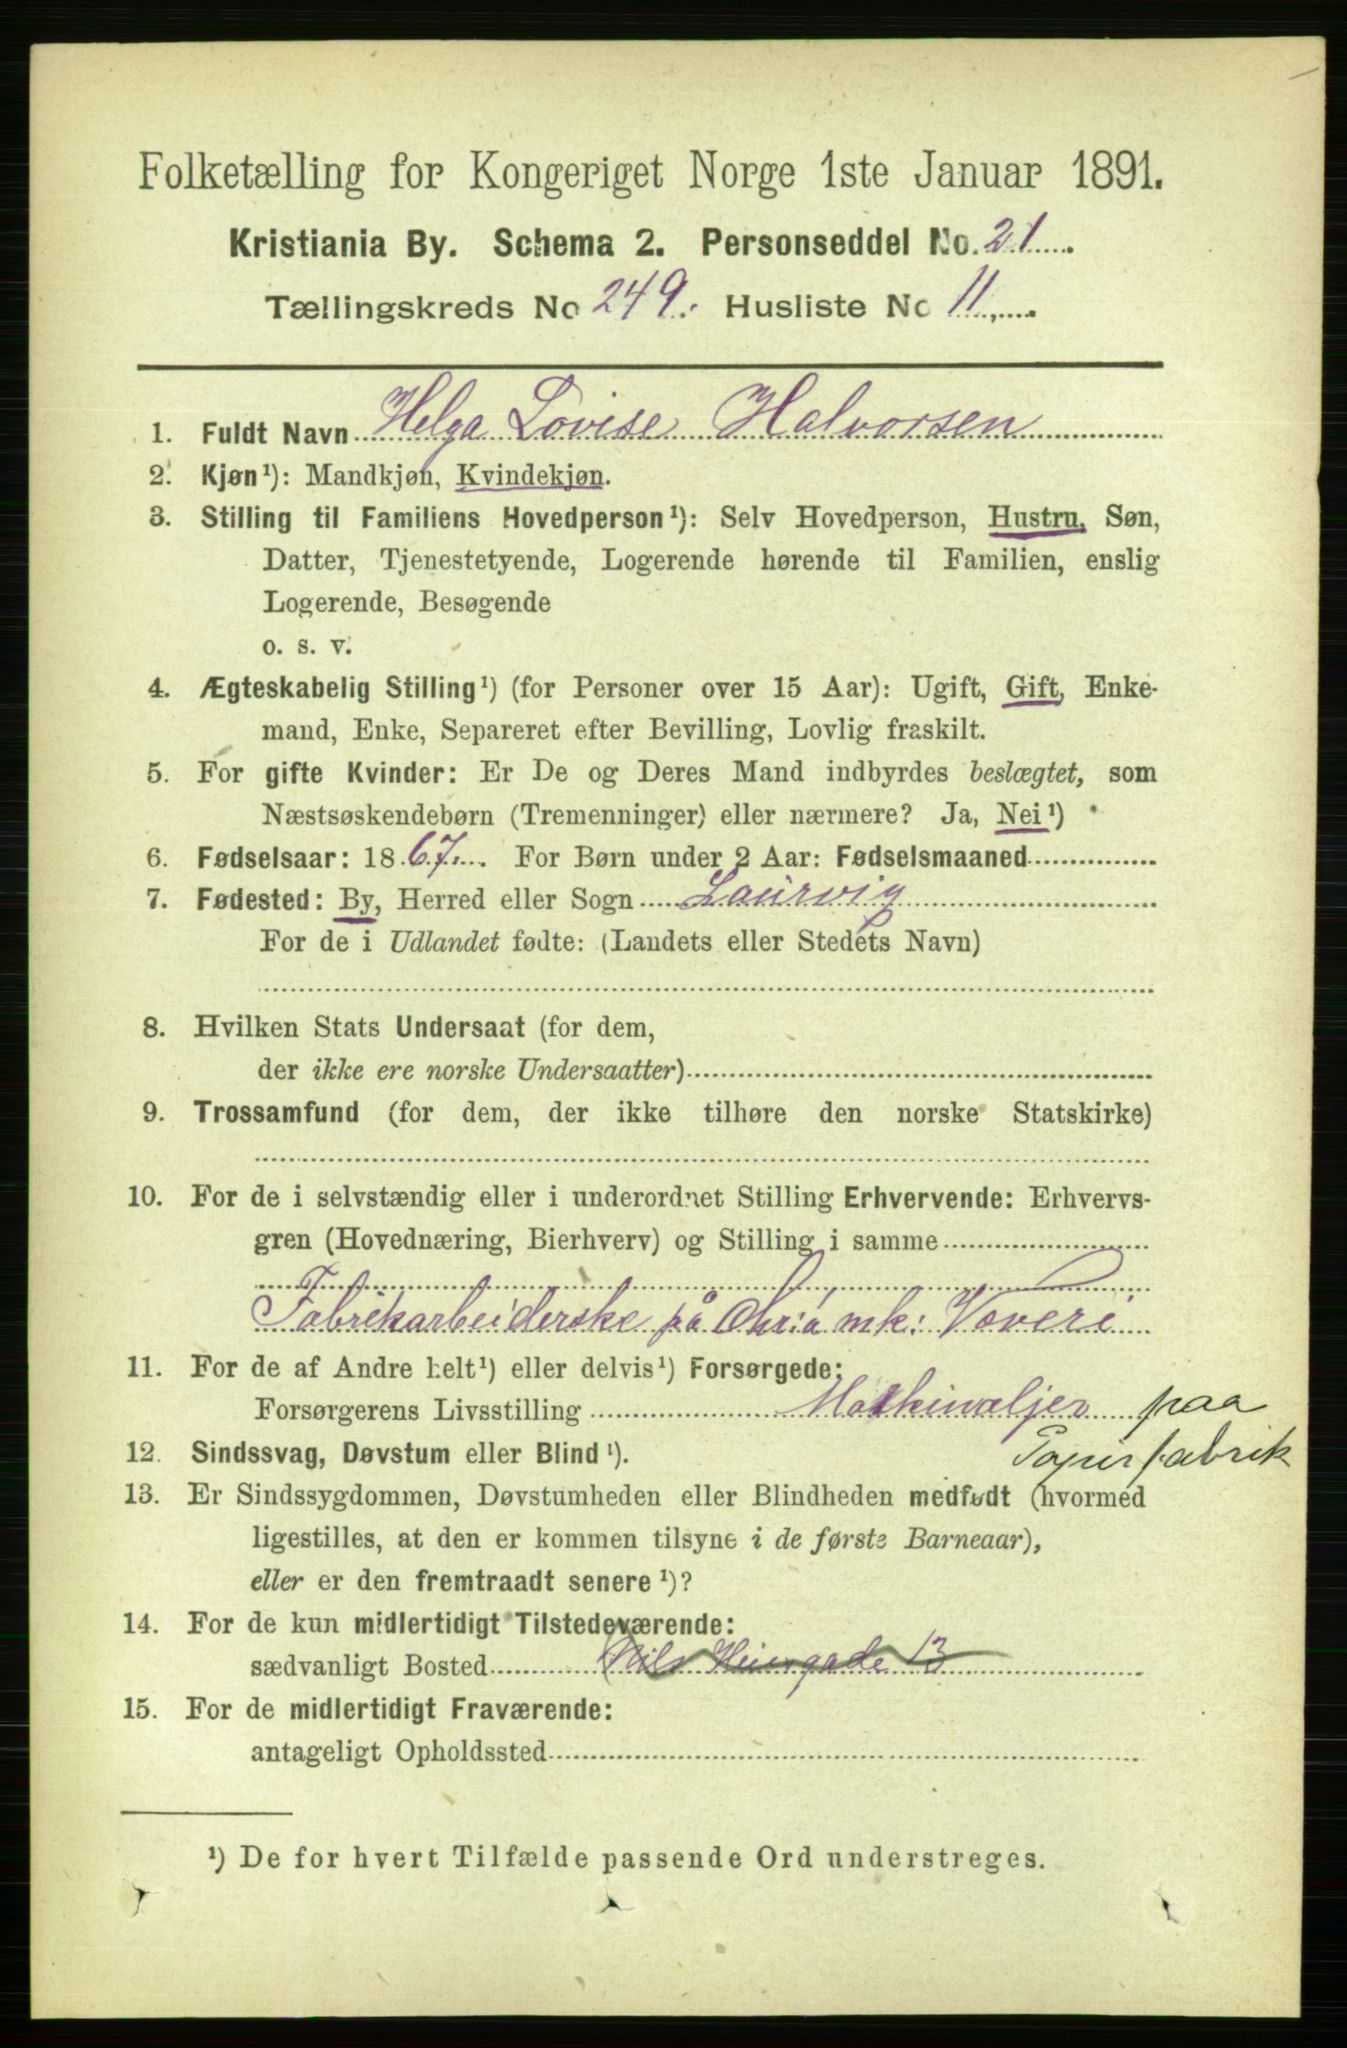 Folketælling for Kongeriget Norge 1ste Januar 1891.
Kristiania By. Schema 2. Personseddel No. 21
Tællingskreds No 249. Husliste No 11
1. Fuldt Navn Helga Lovise Halvorsen
2. Kjøn¹): Mandkjøn, Kvindekjøn.
3. Stilling til Familiens Hovedperson¹): Selv Hovedperson, Hustru, Søn,
Datter, Tjenestetyende, Logerende hørende til Familien, enslig
Logerende, Besøgende
o. s. v.
4. Ægteskabelig Stilling¹) (for Personer over 15 Aar): Ugift, Gift, Enke-
mand, Enke, Separeret efter Bevilling, Lovlig fraskilt.
5. For gifte Kvinder: Er De og Deres Mand indbyrdes beslægtet, som
Næstsøskendebørn (Tremenninger) eller nærmere? Ja, Nei¹)
6. Fødselsaar: 1867. For Børn under 2 Aar: Fødselsmaaned
7. Fødested: By, Herred eller Sogn Laurvig
For de i Udlandet fødte: (Landets eller Stedets Navn)
8. Hvilken Stats Undersaat (for dem,
der ikke ere norske Undersaatter)
9. Trossamfund (for dem, der ikke tilhøre den norske Statskirke)
10. For de i selvstændig eller i underordnet Stilling Erhvervende: Erhvervs-
gren (Hovednæring, Bierhverv) og Stilling i samme
Fabrikarbeiderske på Chr:a mk: Væveri
11. For de af Andre helt¹) eller delvis¹) Forsørgede:
Forsørgerens Livsstilling paa
Papirfabrik
12. Sindssvag, Døvstum eller Blind¹).
13. Er Sindssygdommen, Døvstumheden eller Blindheden medfødt (hvormed
ligestilles, at den er kommen tilsyne i de første Barneaar),
eller er den fremtraadt senere¹)?
14. For de kun midlertidigt Tilstedeværende:
sædvanligt Bosted 13
15. For de midlertidigt Fraværende:
antageligt Opholdssted
¹) De for hvert Tilfælde passende Ord understreges.